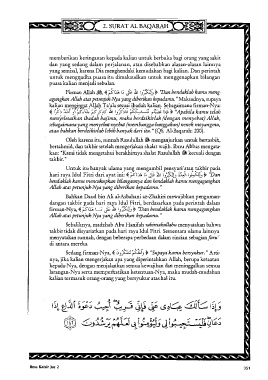 2. SURAT AL BAQARAH
memberikan keringanan kepada kalian untuk berbuka bagi orang yang sakit
dan yang sedang dalam perjalanan, atau disebabkan alasan-alasan lainnya
yang semisal, karena Dia menghendaki kemudahan bagi kalian. Dan perintah
untuk mengqadha puasa itu dimaksudkan untuk menggenapkan bilangan
puasa kalian menjadi sebulan.
Firman Allah ﷻ, "Dan hendaklah kamu meng-
agungkan Allah atas petunjuk-Nya yang diberikan kepadamu." Maksudnya, supaya
kalian mengingat Allah Ta'ala seusai ibadah kalian. Sebagaimana firman-Nya:
"Apabila kamu telah
menyelesaikan ibadah hajimu, maka berdzikirlah dengan menyebut Allah,
sebagaimana kamu menyebut-nyebut
atau bahkan berdzikirlah lebih banyak dari itu." (QS. Al-Baqarah: 200).
Oleh karena itu, sunnah Rasulullah ﷺ menganjurkan untuk bertasbih,
bertahmid, dan takbir setelah mengerjakan shalat wajib. Ibnu Abbas menutur-
kan: "Kami tidak mengetahui berakhirnya shalat Rasulullah ﷺ kecuali dengan
takbir."
Untuk itu banyak ulama yang mengambil pensyari'atan takbir pada
hari raya Idul Fitri dari ayat ini: "Dan
hendaklah kamu mencukupkan bilangannya dan hendaklah kamu mengagungkan
Allah atas petunjuk-Nya yang diberikan kepadamu."
Bahkan Daud bin Ali al-Ashbahani az-Zhahiri mewajibkan pengumandangan
takbir pada hari raya Idul Fitri, berdasarkan pada perintah dalam
firman-Nya, "Dan hendaklah kamu mengagungkan
Allah atas petunjuk-Nya yang diberikan kepadamu."
Sebaliknya, madzhab Abu Hanifah rahimahullahu menyatakan bahwa
takbir tidak disyari'atkan pada hari raya Idul Fitri. Sementara ulama lainnya
menyatakan sunnah, dengan beberapa perbedaan dalam rincian sebagian furu'
di antara mereka.
Sedang firman-Nya, "Supaya kamu bersyukur." Arti-
nya, jika kalian mengerjakan apa yang diperintahkan Allah, berupa ketaatan
kepada-Nya, dengan menjalankan semua kewajiban dan meninggalkan semua
larangan-Nya serta memperhatikan ketentuan-Nya, maka mudah-mudahan
kalian termasuk orang-orang yang bersyukur atas hal itu.
وَإِذَا سَأَلَكَ عِبَادِى عَنِّى فَإِنِّى قَرِيبٌ أُجِيبُ دَعْوَةَ ٱلدَّاعِ إِذَا
دَعَانِ فَلْيَسْتَجِيبُوا۟ لِى وَلْيُؤْمِنُوا۟ بِى لَعَلَّهُمْ يَرْشُدُونَ ﴿١٨٦﴾
Ibnu Katsir Juz 2
351